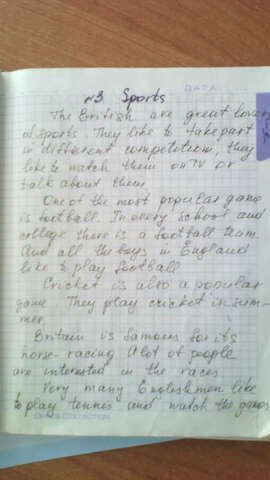 DATA
№3 Sports
The British are great lovers
of sports. They like to take part
in different competition, they
like to watch them on TV or
talk about them.
One of the most popular game
is football. In every school and
college there is a football team.
And all the boys in England
like to play football.
Cricket is also a popular
game. They play cricket in sum-
mer.
Britain is famous for its
horse-racing. A lot of people
are interested in the races
Very many Englishmen like
to play tennis and watch the games
COLLECTION